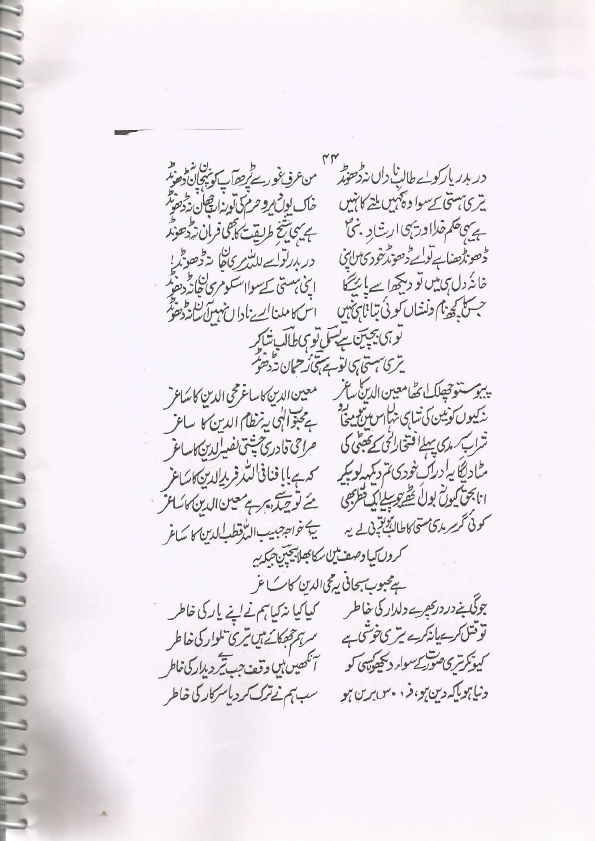 ۴۴
در بدر یار کو اے طالبِ ناداں نہ ڈھونڈ من عرف غور سے پڑھ آپ کو پہچان نہ ڈھونڈ
تیری ہستی کے سوا وہ کہیں ملنے کا نہیں خاک یوں دیر و حرم کی تو نہ اب چھان نہ ڈھونڈ
ہے یہی حکم خدا اور یہی ارشادِ نبیؐ ہے یہی شیخِ طریقت کا بھی فرمان نہ ڈھونڈ
ڈھونڈھنا ہے تو اے ڈھونڈ خودی میں اپنی در بدر تو اے للہ مری جان نہ ڈھونڈ!
خانہ دل ہی میں تو دیکھ اسے پائیگا اپنی ہستی کے سوا اسکو مری جان نہ ڈھونڈ
جس کا کچھ نام و نشاں کوئی بتاتا ہی نہیں اس کا ملنا اے ناداں نہیں آسان نہ ڈھونڈ
تو ہی بیچین ہے بسمل تو ہی طالب شاکر
تیری ہستی ہی تو ہے ہستیٔ نہ ڈھونڈ
پیوستو چھلک اٹھا معین الدین کا ساغر معین الدین کا ساغر محی الدین کا ساغر
نہ کیوں کونین کی شاہی نہاں اس میں ہو میخارو ہے محبوب الٰہی یہ نظام الدین کا ساغر
شراب سرمدی پہلے افتخار الحق کے بھٹی کی صراحی قادری چشتی نصیر الدین کا ساغر
مٹا دیگا یہ ادراکِ خودی تم دیکھ لو پیکر کہ ہے بابا فنا فی اللہ فرید الدین کا ساغر
انا الحق کیوں نہ بول اٹھے جو پی لے ایک قطرہ بھی مئے توحید سے ہے معین الدین کا ساغر
کوئی گر سرمدی مستی کا طالب ہو تو پی لے یہ یہ ہے خواجہ حبیب اللہ قطب الدین کا ساغر
کروں کیا وصف میں اسکا بھلا بیچین جبکہ یہ
ہے محبوب سبحانی یہ محی الدین کا ساغر
جوگی بنے در در پھرے دلدار کی خاطر کیا کیا نہ کیا ہم نے اپنے یار کی خاطر
تو قتل کرے یا نہ کرے تیری خوشی ہے سر ہم جھکائے ہیں تیری تلوار کی خاطر
کیونکر تیری صورت کے سوا دیکھو کسی کو آنکھیں ہیں وقف جب تیرے دیدار کی خاطر
دنیا ہو یا کہ دین ہو، بریں ہو سب ہم نے ترک کر دیا سرکار کی خاطر